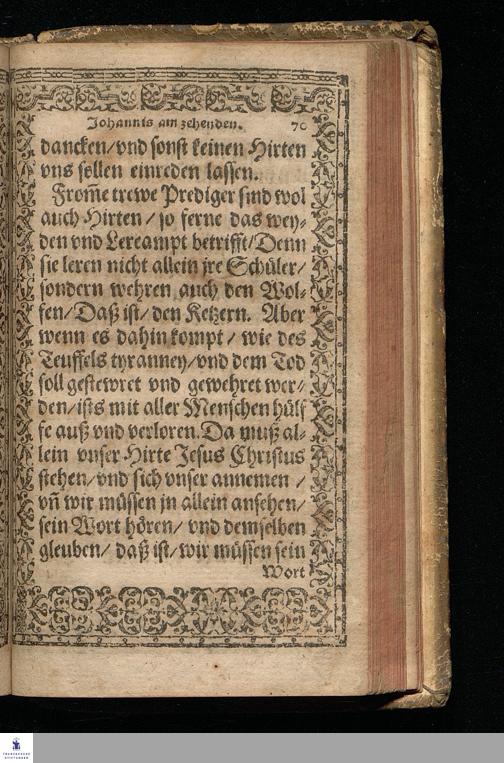 Johannis am zehenden. 70
dancken/vnd sonst keinen Hirten
vns sollen einreden lassen.
From̃e trewe Prediger sind wol
auch Hirten/so ferne das wey-
den vnd Lereampt betrifft/Denn
sie leren nicht allein jre Schüler/
sondern wehren auch den Wol-
fen/Daß ist/den Ketzern. Aber
wenn es dahin kompt/wie des
Teuffels tyranney/vnd dem Tod
soll gestewret vnd gewehret wer-
den/ists mit aller Menschen hülf
fe auß vnd verloren. Da muß al-
lein vnser Hirte Jesus Christus
stehen/vnd sich vnser annemen/
vñ wir müssen jn allein ansehen/
sein Wort hören/vnd demselben
gleuben/daß ist/wir müssen sein
Wort
FRANCKESCHE
STIFTUNGEN